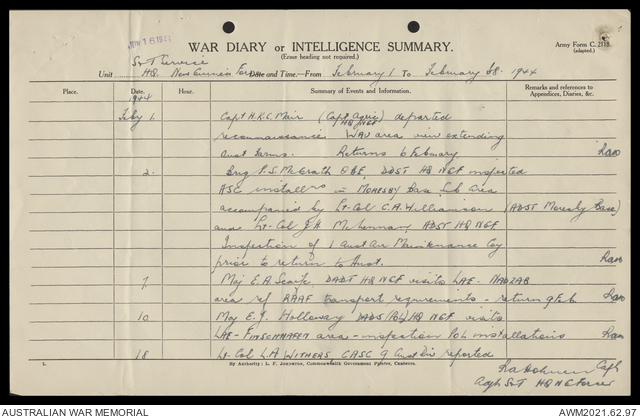 WAR DIARY or INTELLIGENCE SUMMARY.
(Erase heading not required.)
Army Form C. 2118.
(adapted)
S&T Service
Unit HQ New Guinea Force Date and Time.—From February 1 To February 28. 1944
Place. Date. Hour. Summary of Events and Information. Remarks and references to Appendices, Diaries, &c.
1944
Feby 1. Capt H.K.C. Mair (Capt Agric HQ NGF) departed
reconnaissance WAU area view extending
Aust Farms. Returns 6 February
2. Brig P.S. McGrath OBE, DDST HQ NGF inspected
ASC installns in MORESBY Base Sub area
accompanied by Lt-Col C.A. Williamson (ADST Moresby Base)
and Lt-Col J.H. McLennan ADST HQ NGF
Inspection of 1 Aust Air Maintenance Coy
prior to return to Aust.
7 Maj E.A. Scarfe DADT HQ NGF visits LAE-NADZAB
area ref RAAF transport requirements - return 9 Feb
10 Maj E.J. Holloway DADS(POL) HQ NGF visits
LAE-FINSCHHAFEN area - inspection POL installations
18 Lt-Col L.A. WITHERS CASC 9 Aust Div reported
Capt
Adjt S&T HQ NG Force
1. By Authority: L. F. Johnston, Commonwealth Government Printer, Canberra.
AUSTRALIAN WAR MEMORIAL AWM2021.62.97